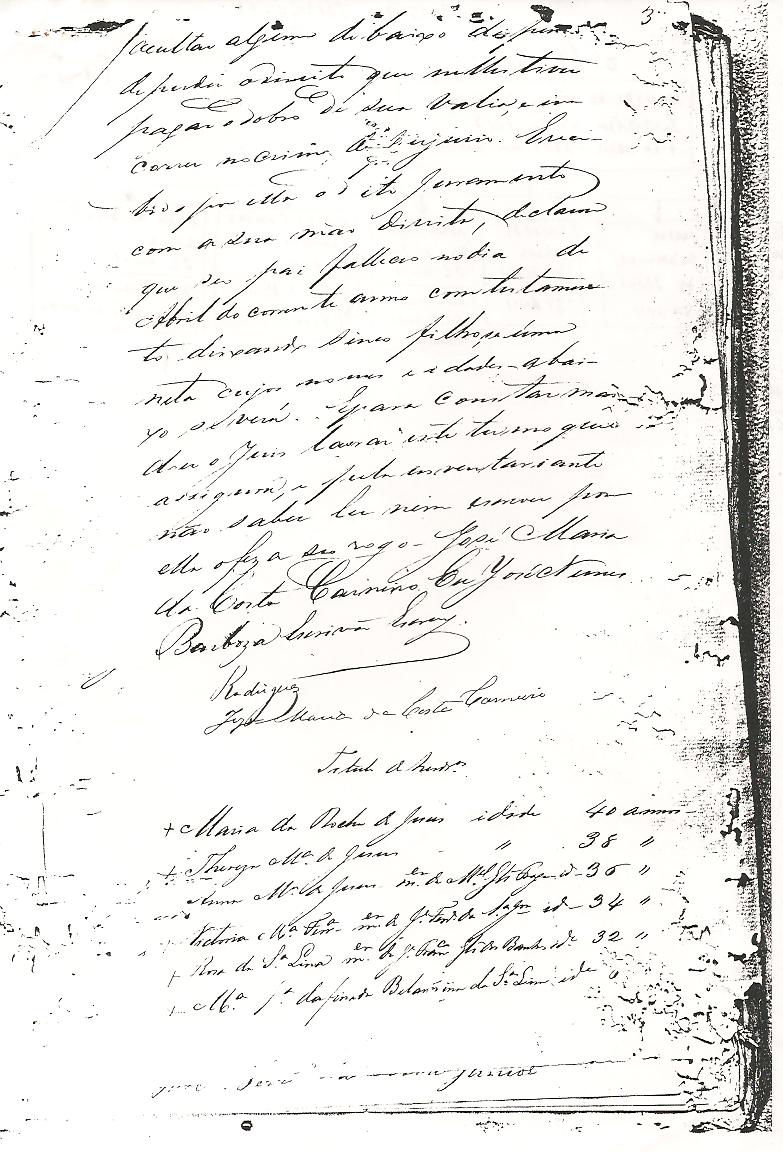 3
ocultar algum debaixo de pena
de perder o direito que nelles tiver
pagar o dobro de sua valia, e in
correr no crime de perjurio. Erece
bido por ella o dito juramento
com a sua mão direita, declarou
que seo pai falleceo no dia de
Abril do corrente anno com testamen
to deixando sinco filhos, e uma
neta cujos nomes e idades abai-
xo se verá. Epara constar man
dou o Juis lavrar este termo que
assignou, e pela inventariante
não saber ler nem escrever por
ella ofez a seo rogo - José Maria
da Costa Carneiro Eu José Nunes
Barboza Escrivão Escrevy.
Rodrigues
José Maria da Costa Carneiro
Titulo de herdros
+ Maria da Rocha de Jesus idade 40 annos
+ Thereza Ma. de Jesus " 38 "
Anna Ma. de Jesus id 36 "
+ Victoria Ma. id 34 "
+ Rosa da Sa. Lima ide 32 "
+ Ma. fa. da finada da Sa. Lima ide "
junior